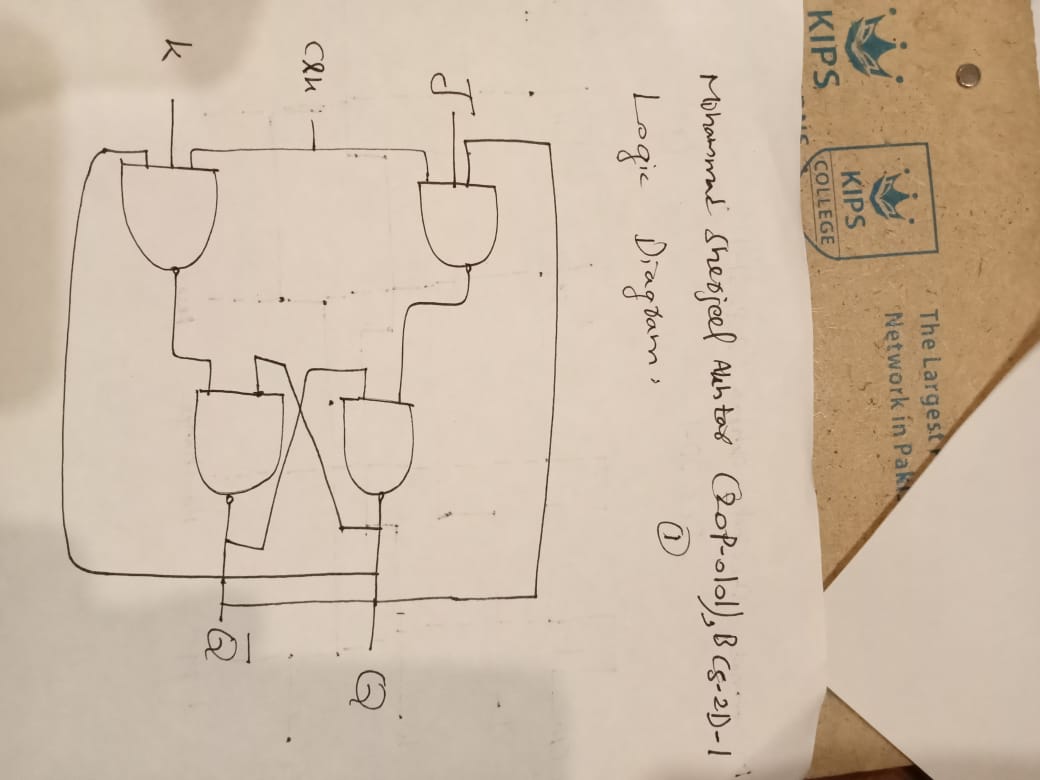 KIPS
KIPS
COLLEGE
The Largest
Network in Pak
Mohammad Sherjeel Akhtar (20P-0101), BCS-2D-1
①
Logic Diagram,
J
Clk
K
Q
Q̅